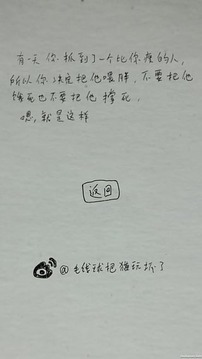 有一天你抓到了一个比你瘦的人,
所以你决定把他喂胖,不要把他
饿死也不要把他撑死,
嗯,就是这样
返回
@毛线球把猫玩坏了